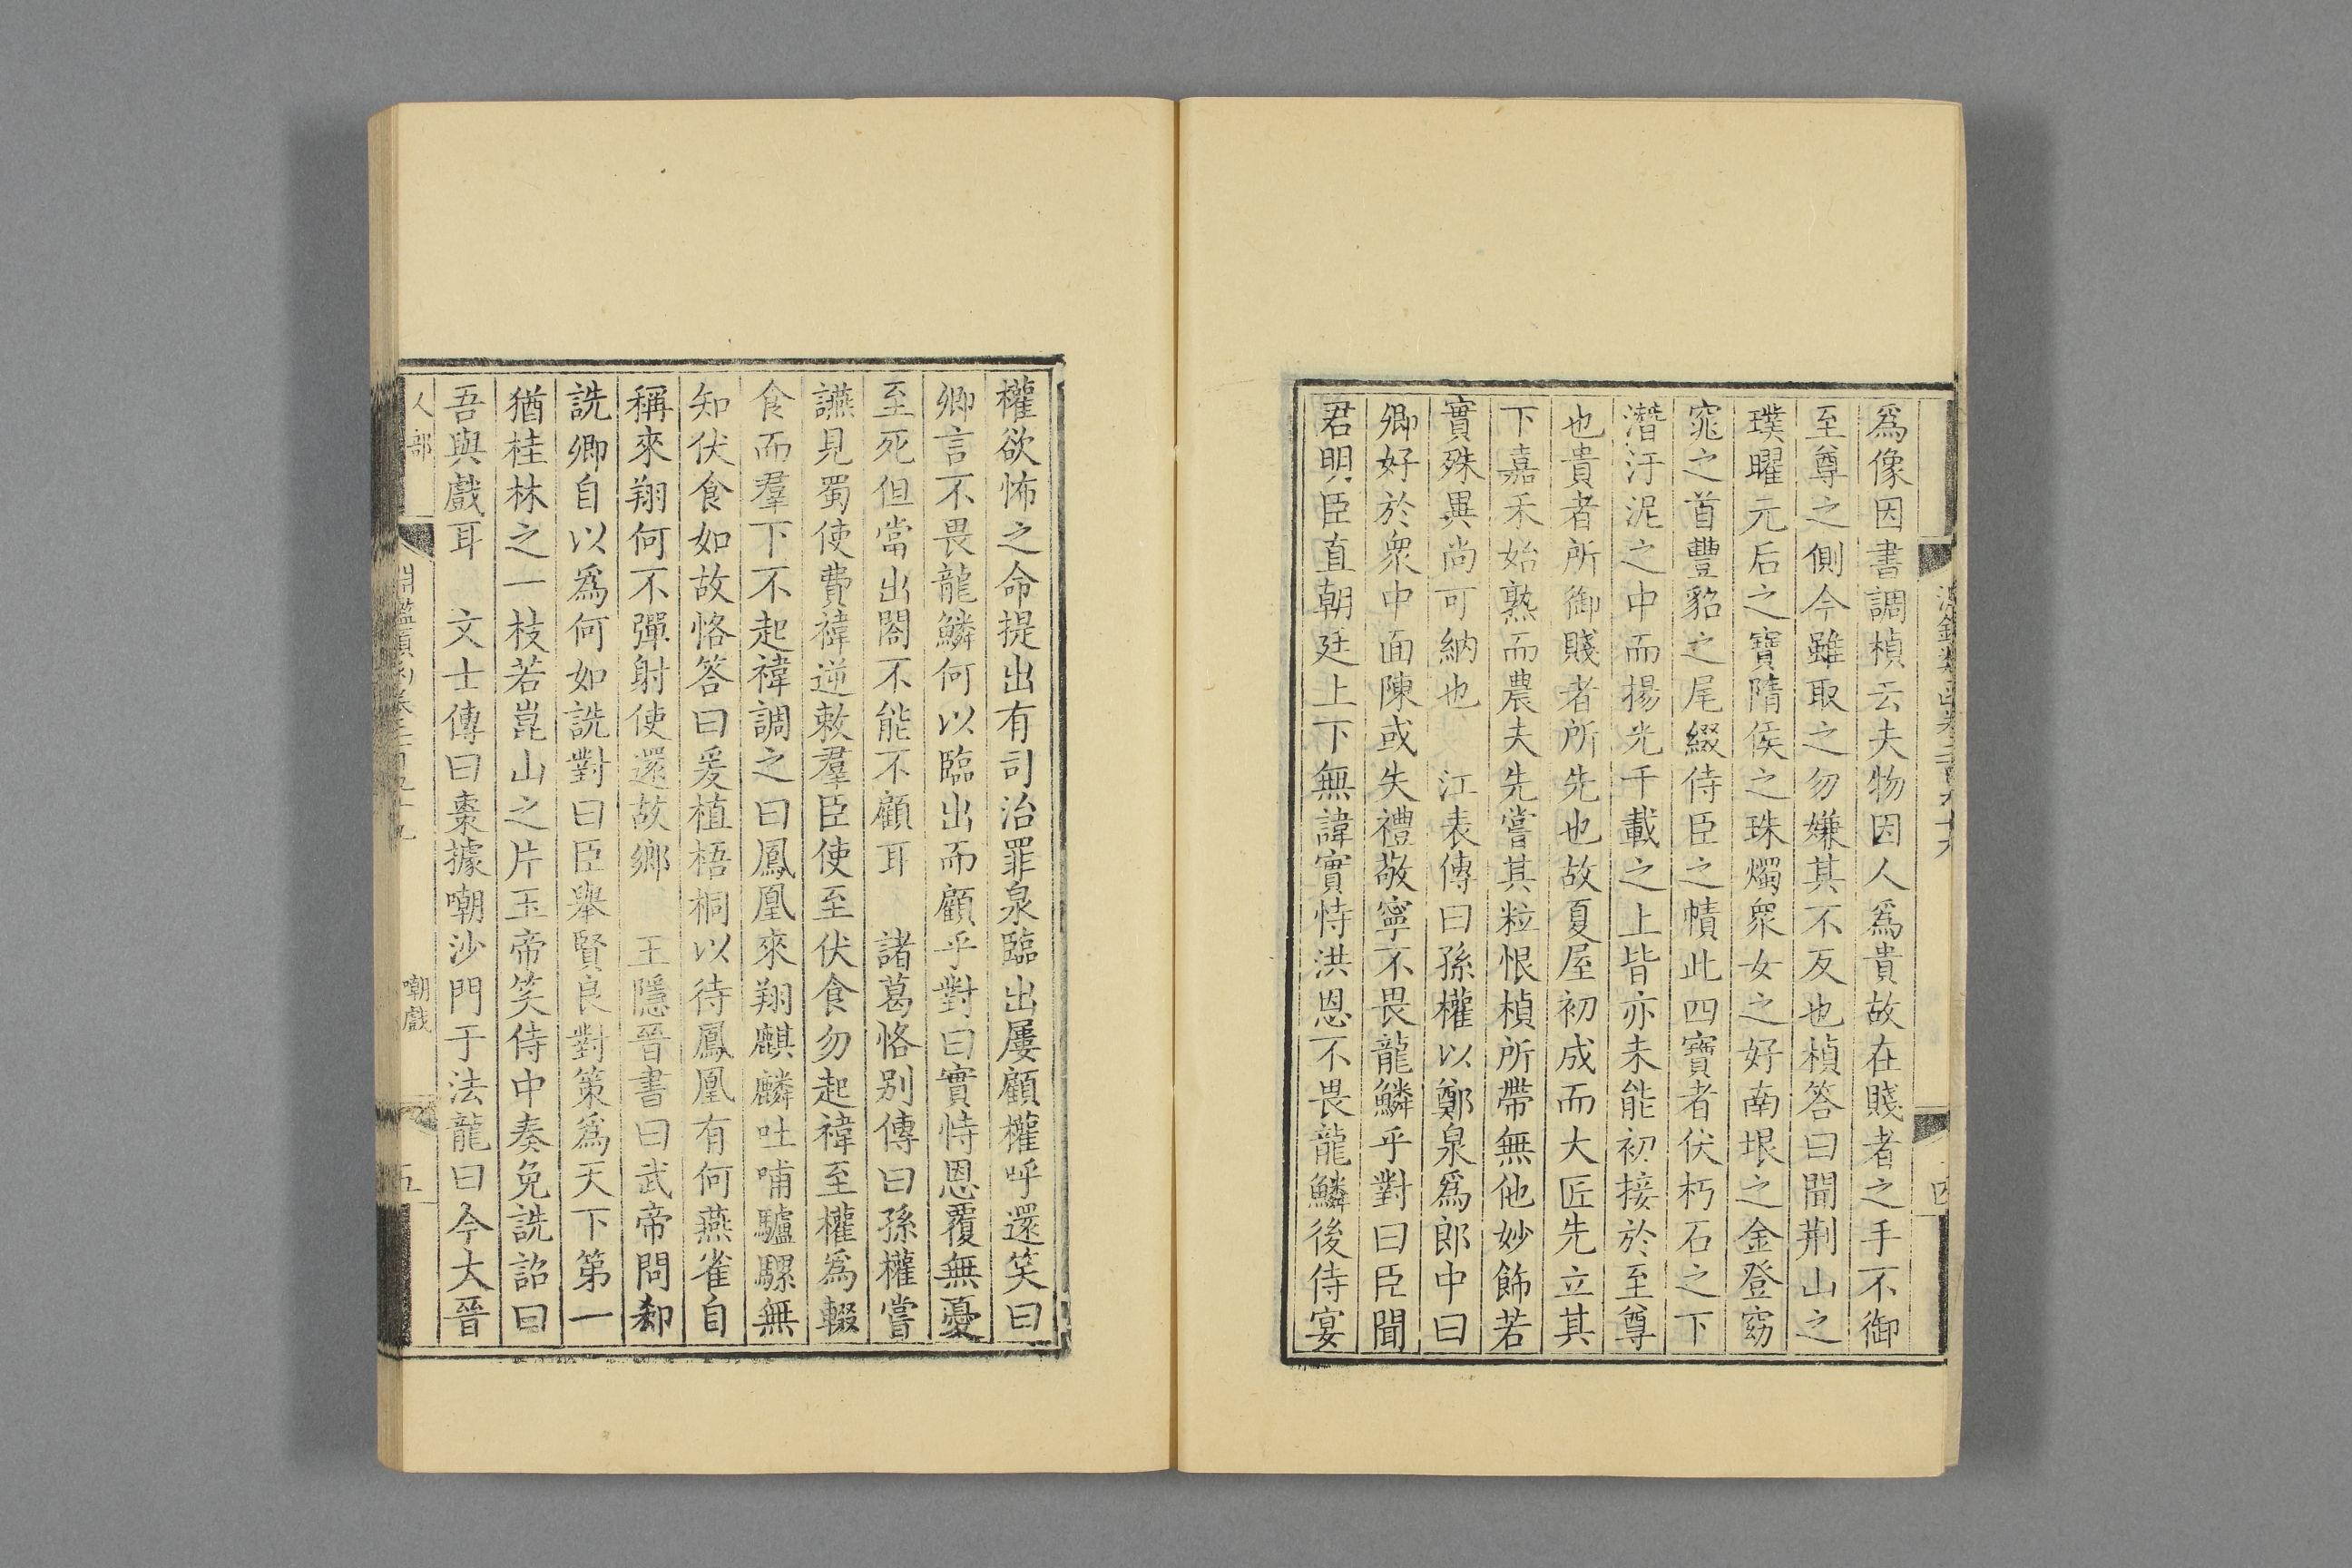 爲像因書調楨云夫物因人爲貴故在賤者之手不御
至尊之側今雖取之勿嫌其不反也楨答曰聞荆山之
璞曜元后之寶隋侯之珠燭衆女之好南垠之金登窈
窕之首豐貂之尾綴侍臣之幘此四寶者伏朽石之下
潛汙泥之中而揚光千載之上皆亦未能初接於至尊
也貴者所御賤者所先也故夏屋初成而大匠先立其
下嘉禾始熟而農夫先嘗其粒恨楨所帶無他妙飾若
實殊異尚可納也　江表傳曰孫權以鄭泉爲郎中曰
卿好於衆中面陳或失禮敬寧不畏龍鱗乎對曰臣聞
君明臣直朝廷上下無諱實恃洪恩不畏龍鱗後侍宴
權欲怖之命提出有司治罪泉臨出屢顧權呼還笑曰
卿言不畏龍鱗何以臨出而顧乎對曰實恃恩覆無憂
至死但當出閤不能不顧耳　諸葛恪別傳曰孫權嘗
讌見蜀使費禕逆敕羣臣使至伏食勿起禕至權爲輟
食而羣下不起禕調之曰鳳凰來翔麒麟吐哺驢騾無
知伏食如故恪答曰爰植梧桐以待鳳凰有何燕雀自
稱來翔何不彈射使還故鄉　王隱晉書曰武帝問郄
詵卿自以爲何如詵對曰臣舉賢良對策爲天下第一
猶桂林之一枝若崑山之片玉帝笑侍中奏免詵詔曰
吾與戲耳　文士傳曰棗據嘲沙門于法龍曰今大晉
人部
嘲戲
五